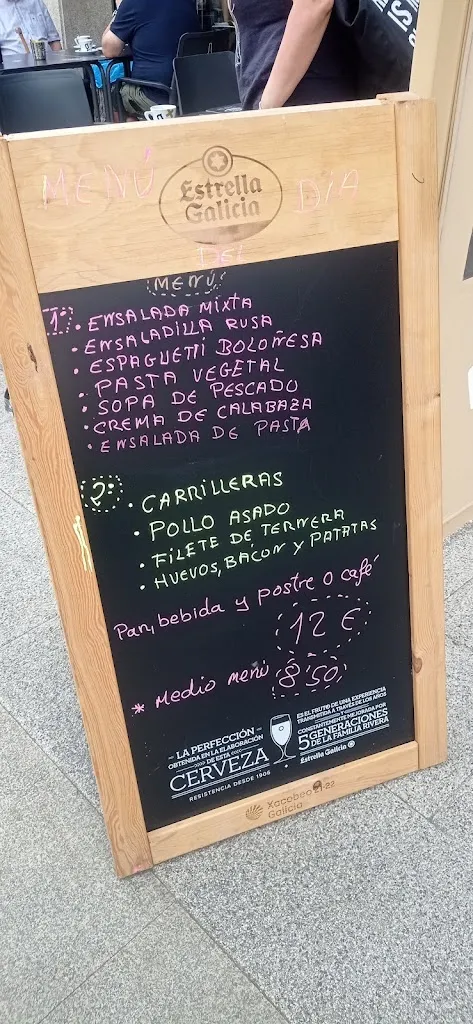 MENÚ
Estrella
Galicia
DIA
DEL
MENÚ
1º. ENSALADA MIXTA
. ENSALADILLA RUSA
. ESPAGUETTI BOLOÑESA
. PASTA VEGETAL
. SOPA DE PESCADO
. CREMA DE CALABAZA
. ENSALADA DE PASTA
2º. CARRILLERAS
. POLLO ASADO
. FILETE DE TERNERA
. HUEVOS, BACON Y PATATAS
Pan, bebida y postre o café
12 €
* Medio menú 8'50
LA PERFECCIÓN
OBTENIDA EN LA ELABORACIÓN
DE ESTA
CERVEZA
RESISTENCIA DESDE 1906
ES EL FRUTO DE UNA EXPERIENCIA
TRANSMITIDA A TRAVÉS DE LOS AÑOS
Y
CONSTANTEMENTE MEJORADA POR
5 GENERACIONES
DE LA FAMILIA RIVERA
Estrella Galicia
Xacobeo 21·22
Galicia